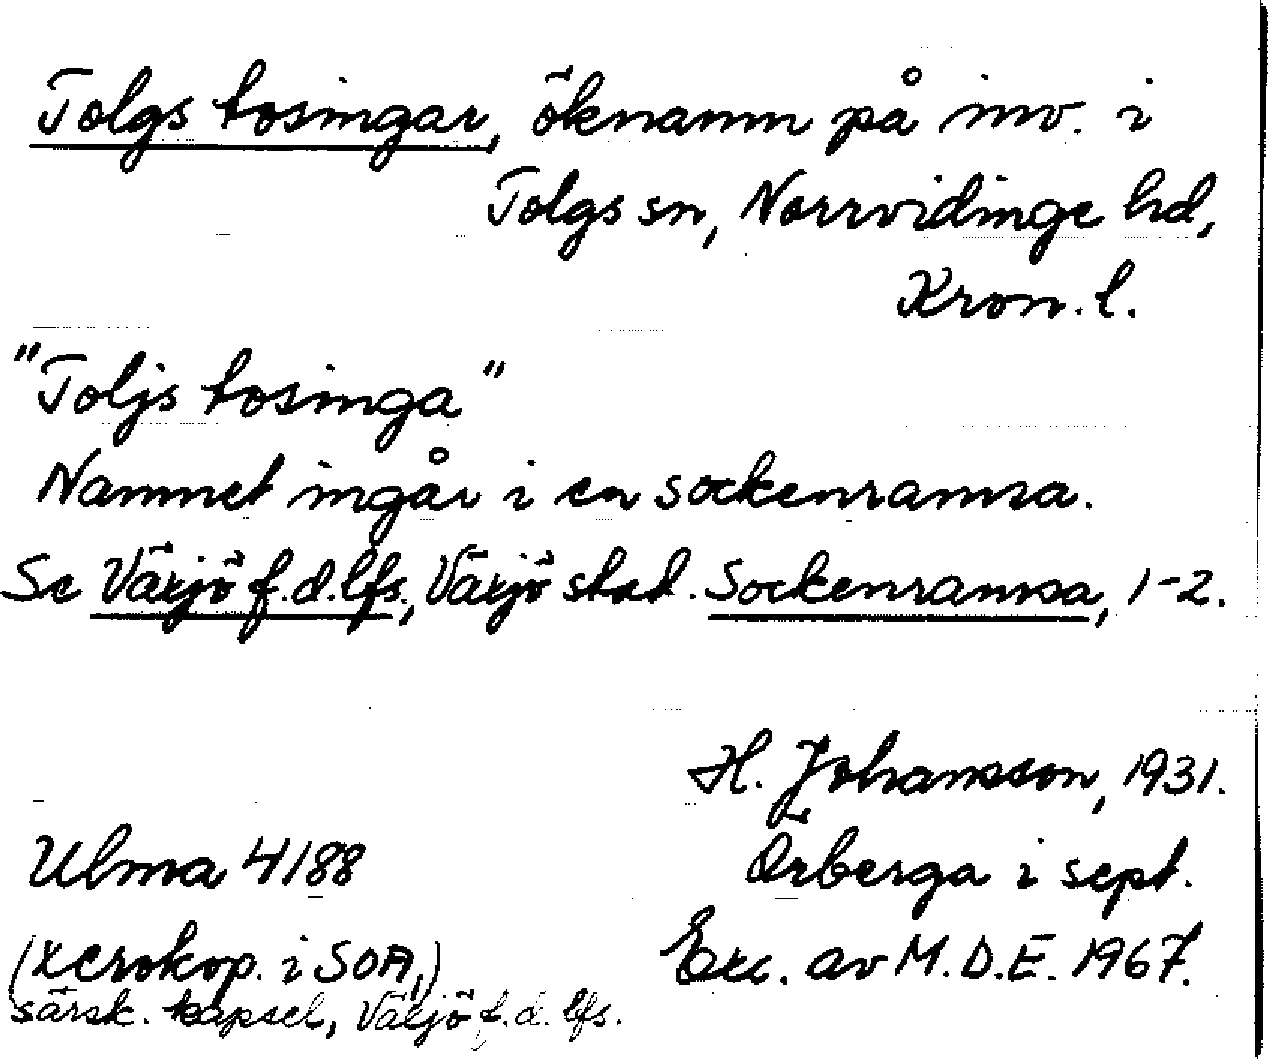 Tolgs tosingar, öknamn på inv. i
Tolgs sn, Norrvidinge hd,
Kron. l.
"Toljs tosinga"
Namnet ingår i en sockenramsa.
Se Växjö f.d. lfs., Växjö stad. Sockenramsa, 1-2.
H. Johansson, 1931.
Ulma 4188
Örberga i sept.
(xerokop. i SOA,)
Exc. av M.D.E. 1967.
särsk. kapsel, Växjö f.d. lfs.